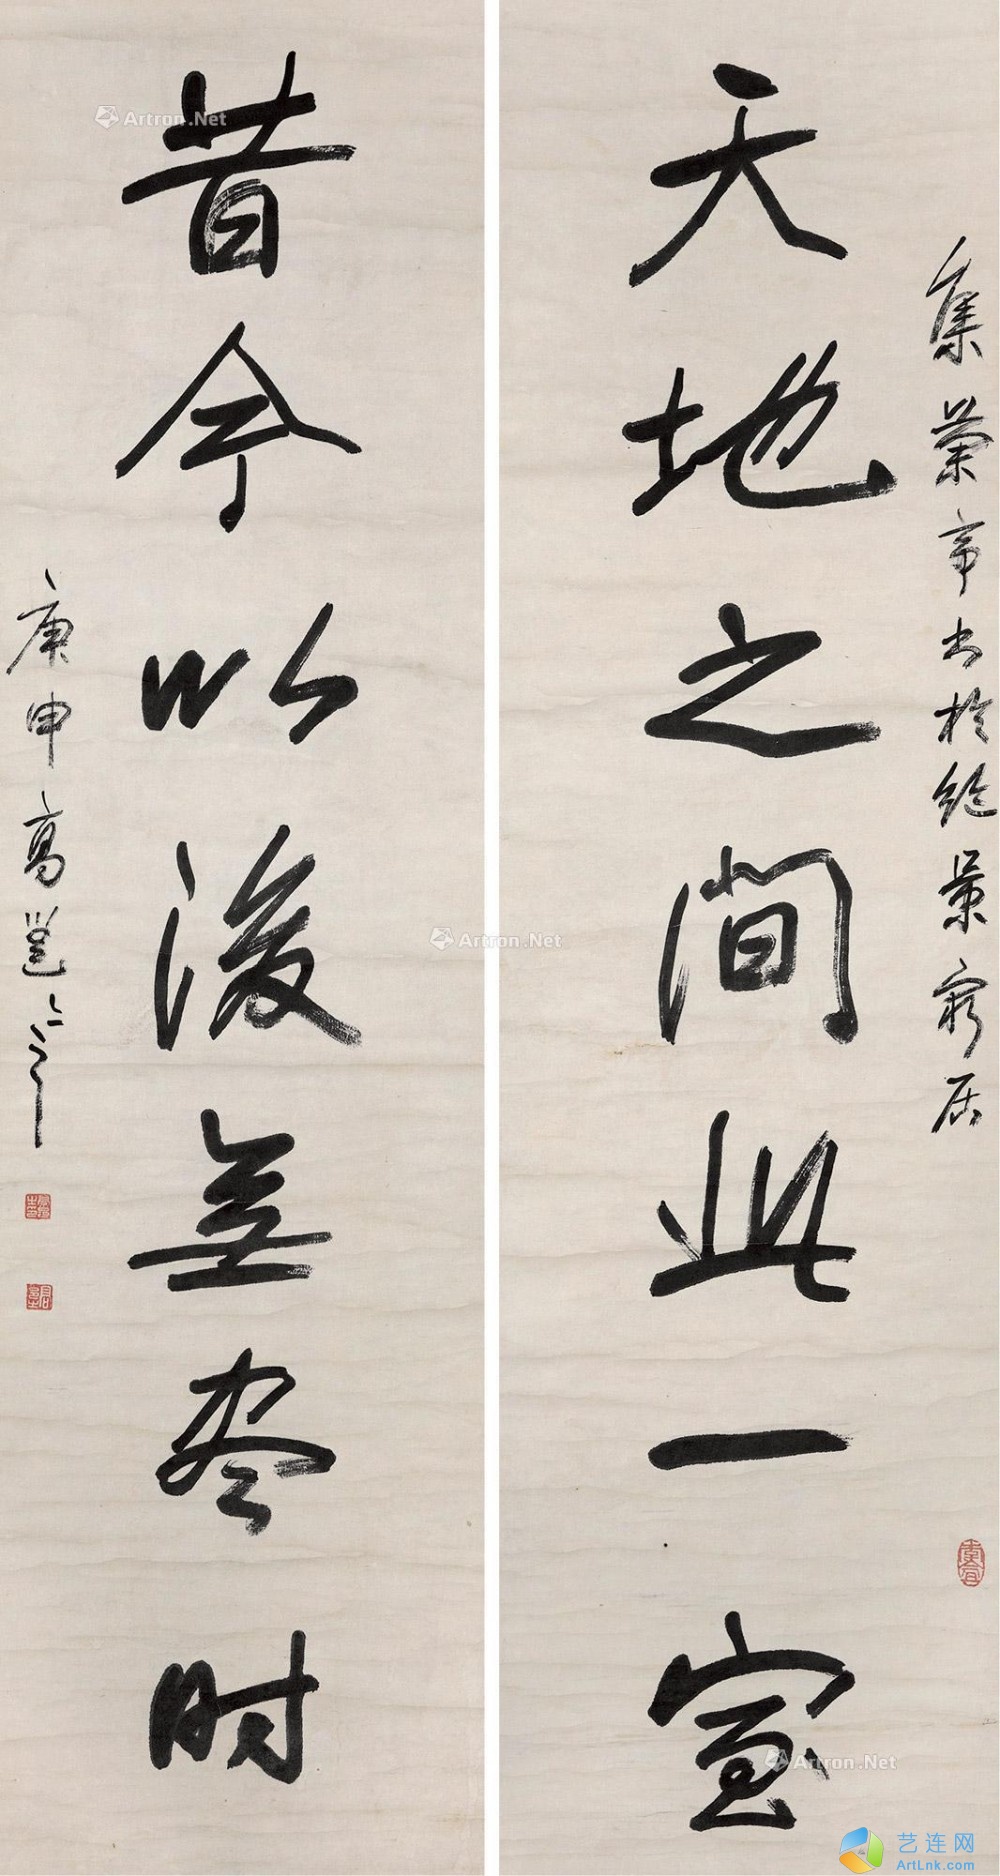 天地之間此一室
集蘭亭書於絕景窮居
昔今以後無盡時
庚申高邕
Artron.Net
Artron.Net
Artron.Net
艺连网
ArtLnk.com